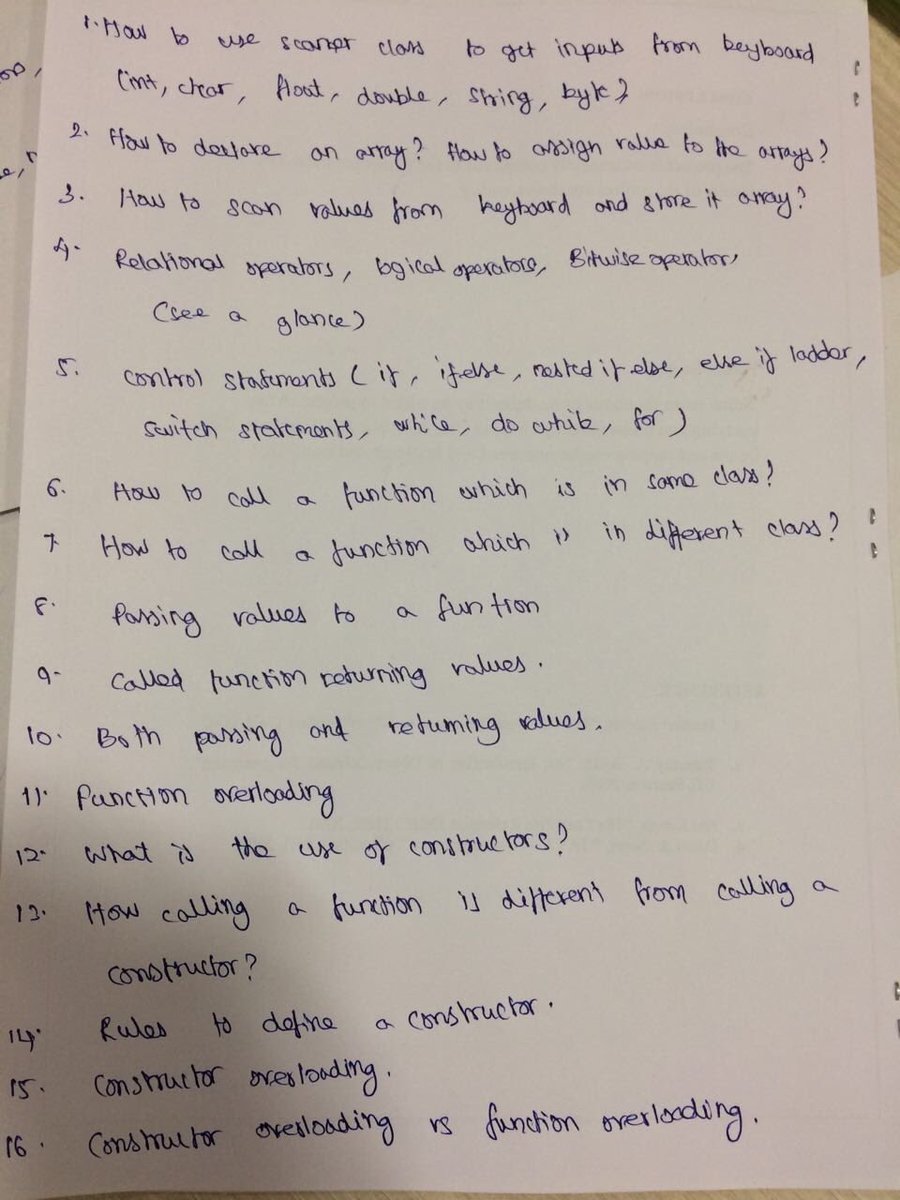 1. How to use scanner class to get inputs from keyboard
(int, char, float, double, string, byte)
2. How to declare an array? How to assign value to the arrays?
3. How to scan values from keyboard and store it array?
4. Relational operators, logical operators, Bitwise operator,
(see a glance)
5. control statements ( if, if else, nested if else, else if ladder,
switch statements, while, do while, for )
6. How to call a function which is in same class?
7 How to call a function which is in different class?
8. Passing values to a funtion
9. Called function returning values.
10. Both passing and returning values.
11. Function overloading
12. What is the use of constructors?
13. How calling a function is different from calling a
constructor?
14. Rules to define a constructor.
15. Constructor overloading.
16. Constructor overloading vs function overloading.